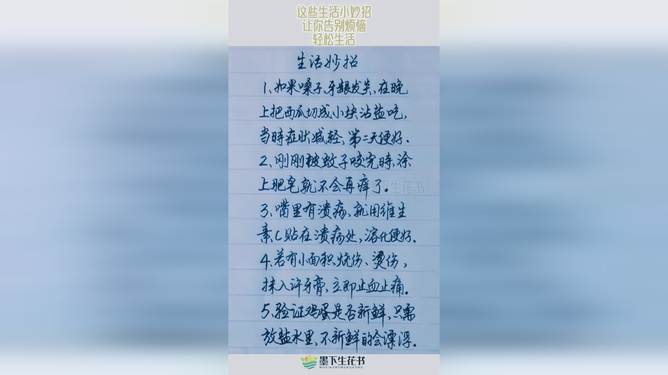 这些生活小妙招
让你告别烦恼
轻松生活
生活妙招
1、如果嗓子、牙龈发炎,在晚
上把西瓜切成小块沾盐吃,
当时症状减轻,第二天便好.
2、刚刚被蚊子咬完时,涂
上肥皂就不会再痒了.
3、嘴里有溃疡,就用维生
素C贴在溃疡处,溶化便好.
4、若有小面积烧伤、烫伤,
抹入许牙膏,立即止血止痛.
5、验证鸡蛋是否新鲜,只需
放盐水里,不新鲜的会漂浮.
墨下生花书